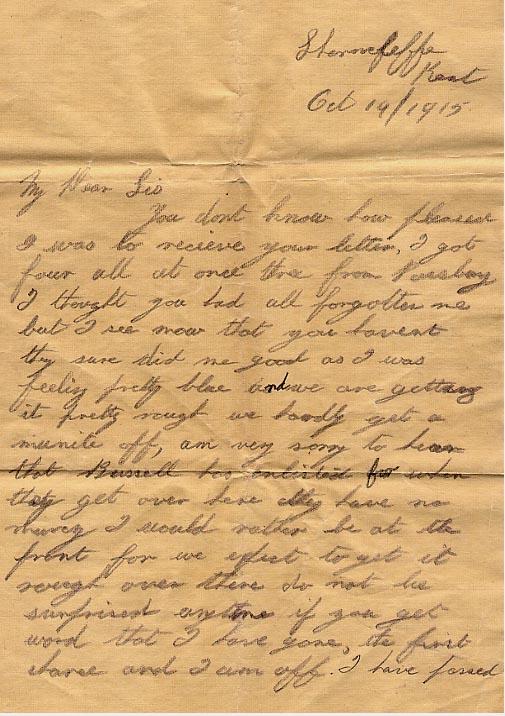 Shorncliffe
Kent
Oct 19/1915
My Dear Sis
You dont know how pleased
I was to recieve your letter, I got
four all at once three from
I thought you had all forgotten me
but I see now that you havent
they sure did me good as I was
feeling pretty blue and we are getting
it pretty rough we hardly get a
munite off, am very sorry to hear
that Russell has enlisted for when
they get over here they have no
murcy I would rather be at the
front for we expect to get it
rough over there do not be
surprised anytime if you get
word that I have gone, the first
chance and I am off. I have passed